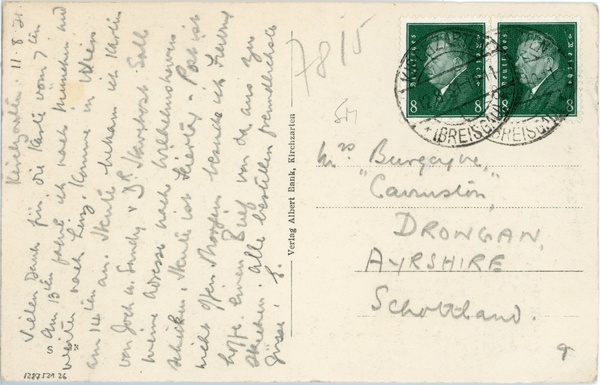 Kirchzarten 11.8.31.
Vielen Dank für die Karte vom 7ten
Am 13ten fahre ich nach München und
weiter nach Linz, komme in Wien
am 14ten an. Heute bekam ich Karten
von Jock u. Sandy.
meine Adresse nach Wilhelmshaven
schicken. Heute ist Feiertag & Post ist
nicht offen. Morgen ich
hoffe einen Brief von Dir aus zu
schreiben. Alle bestellen freundlichste
Grüsse,
S
1282521 26
Verlag Albert Bank, Kirchzarten
7815
DEUTSCHES REICH
8
DEUTSCHES REICH
8
KIRCHZARTEN
(BREISGAU)
KIRCHZARTEN
(BREISGAU)
Mrs Burgoyne,
"Cawnston",
DRONGAN,
AYRSHIRE
Schottland.